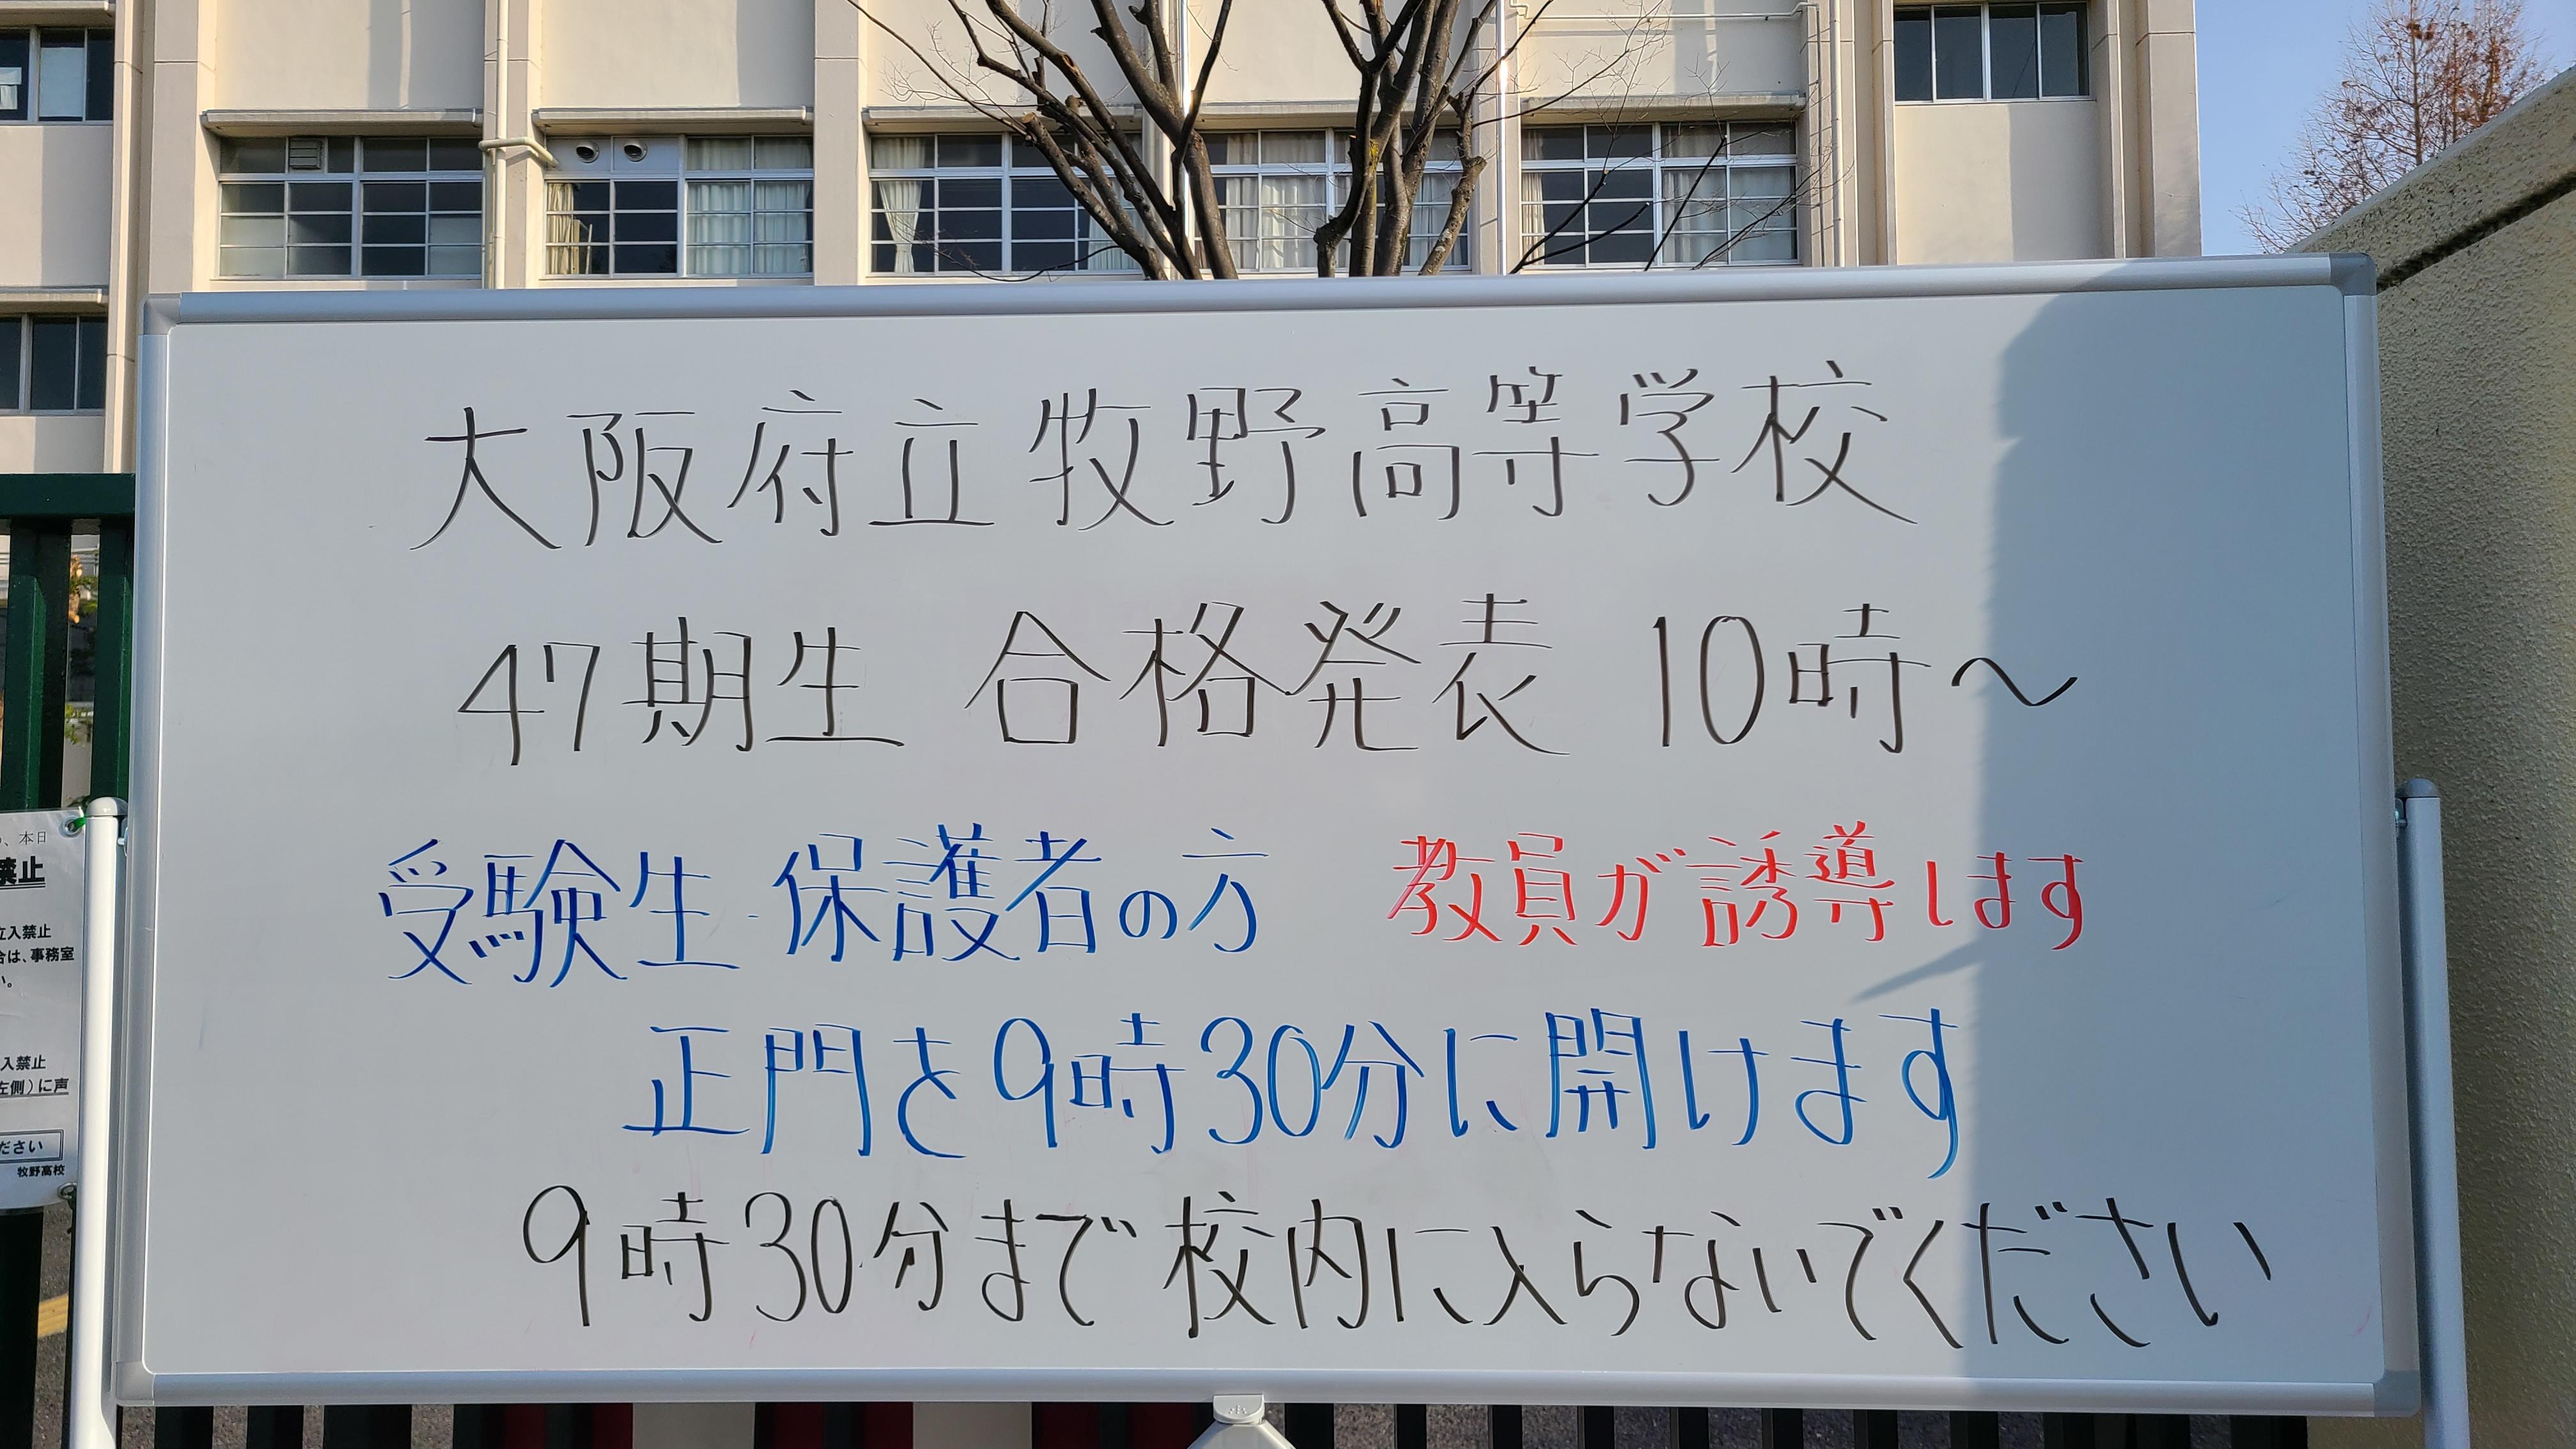 大阪府立牧野高等学校
47期生 合格発表 10時～
受験生・保護者の方 教員が誘導します
正門を9時30分に開けます
9時30分まで校内に入らないでください
、本日
禁止
立入禁止
合は、事務室
い。
入禁止
左側）に声
ださい
牧野高校